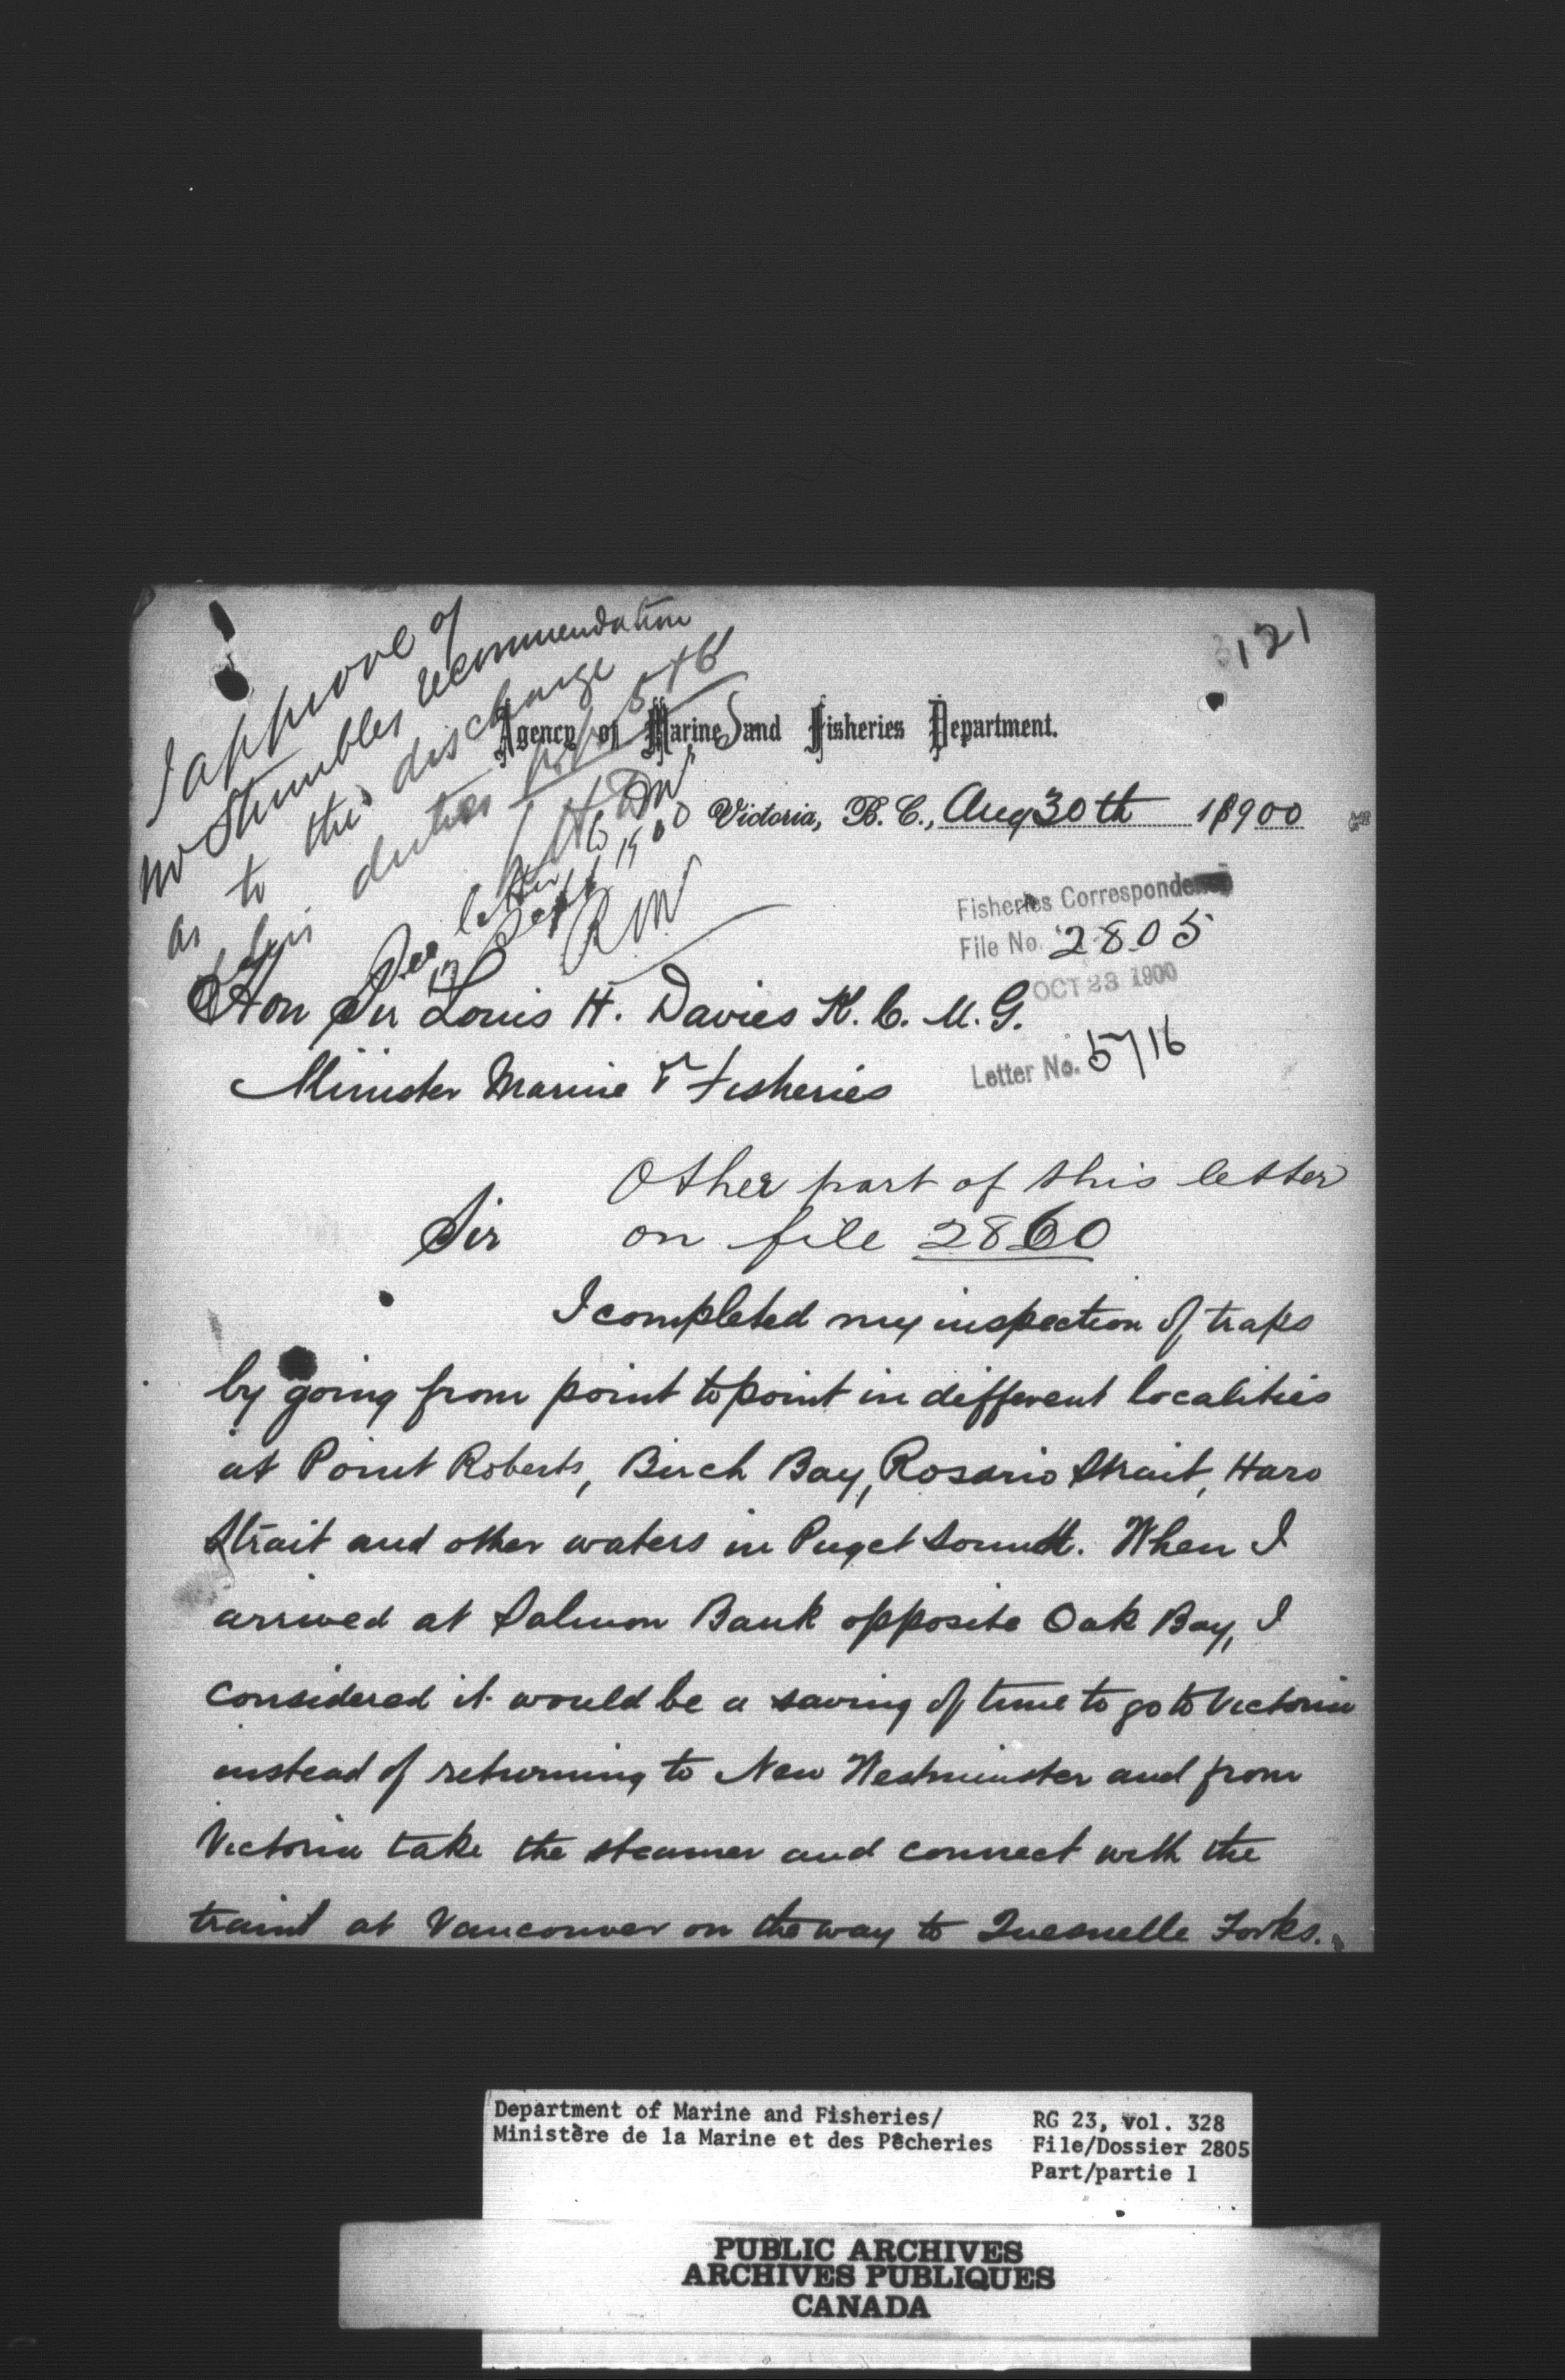 121
I approve of
Mr Stumbles recommendation
as to the discharge
of his duties pp 5 & 6
LHD
See letter to Dm
13 Sept 1900
RNV
Agency of Marine and Fisheries Department.
Victoria, B. C., Aug 30th 18900
Fisheries Correspondence
File No. 2805
OCT 23 1900
Letter No. 5716
Hon Sir Louis H. Davies K. C. M. G.
Minister Marine & Fisheries
Other part of this letter
on file 2860
Sir
I completed my inspection of traps
by going from point to point in different localities
at Point Roberts, Birch Bay, Rosario Strait, Haro
Strait and other waters in Puget Sound. When I
arrived at Salmon Bank opposite Oak Bay, I
considered it would be a saving of time to go to Victoria
instead of returning to New Westminster and from
Victoria take the steamer and connect with the
train at Vancouver on the way to Quesnelle Forks.
Department of Marine and Fisheries/
Ministère de la Marine et des Pêcheries
RG 23, vol. 328
File/Dossier 2805
Part/partie 1
PUBLIC ARCHIVES
ARCHIVES PUBLIQUES
CANADA